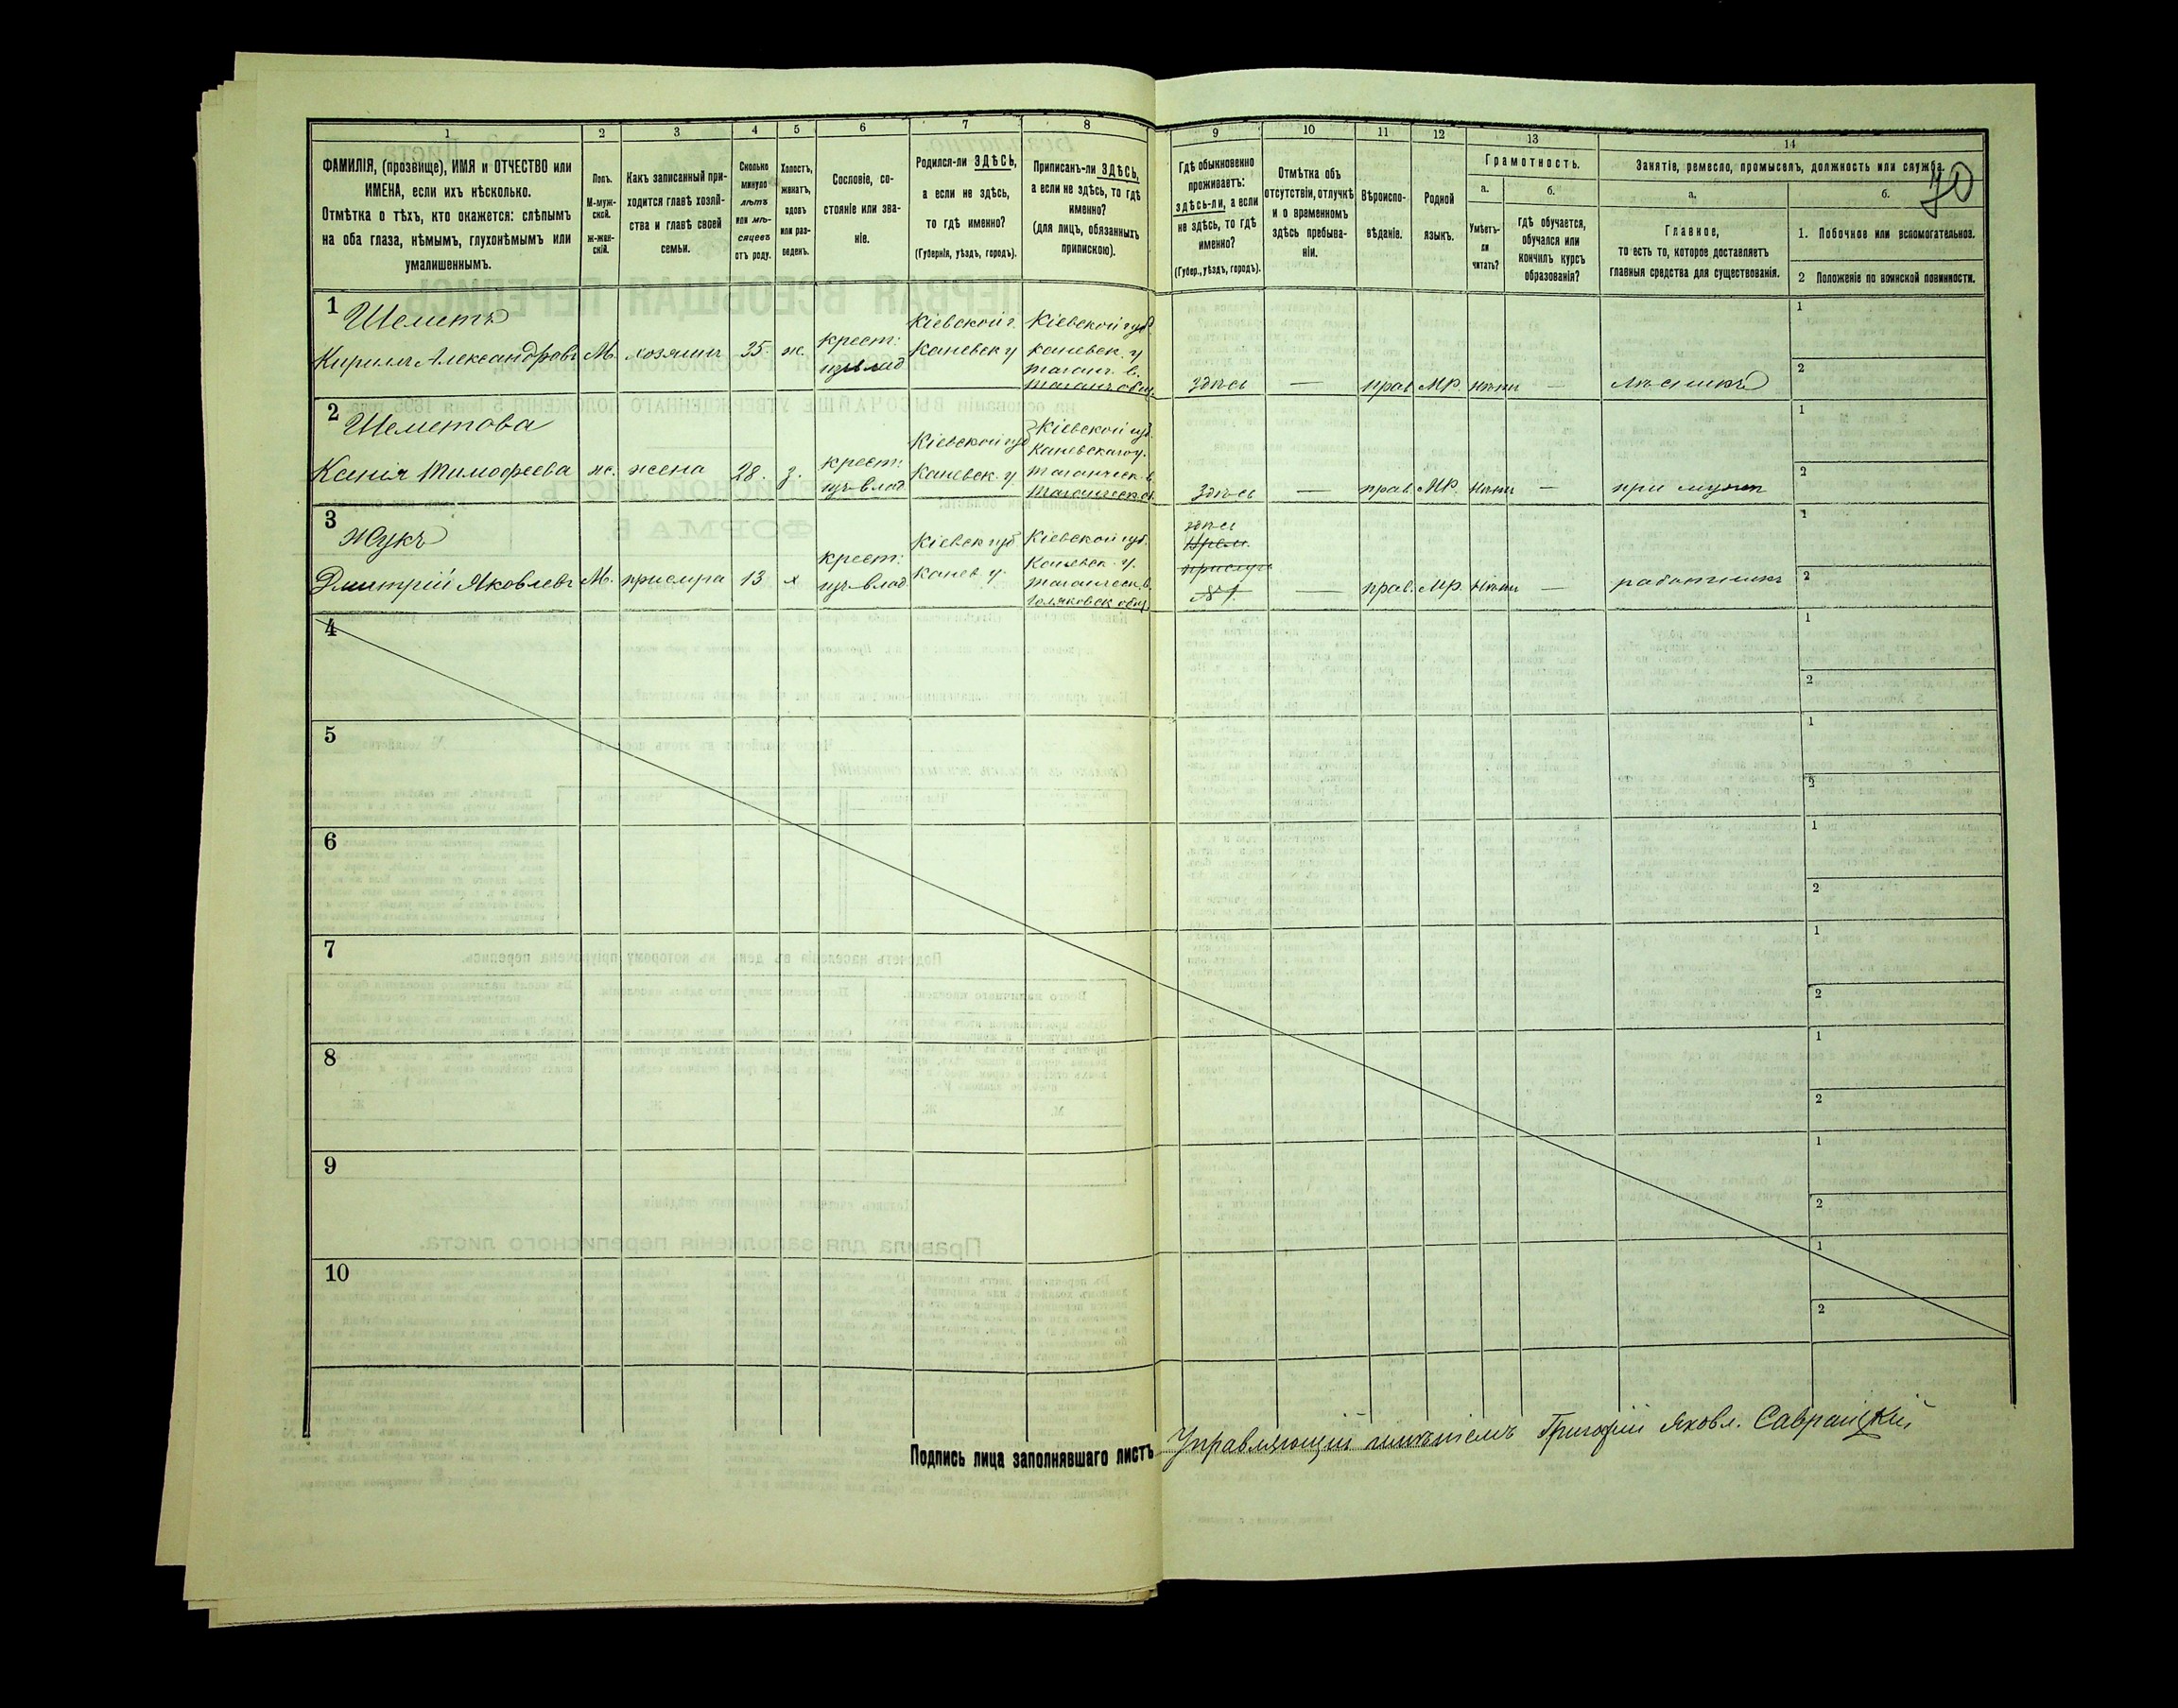 1
2
3
4
5
6
7
8
ФАМИЛІЯ, (прозвище), ИМЯ и ОТЧЕСТВО или
ИМЕНА, если ихъ нѣсколько.
Отмѣтка о тѣхъ, кто окажется: слѣпымъ
на оба глаза, нѣмымъ, глухонѣмымъ или
умалишеннымъ.
Полъ.
М-муж-
ской.
ж-жен-
скій.
Какъ записанный при-
ходится главѣ хозяй-
ства и главѣ своей
семьи.
Сколько
минуло
лѣтъ
или мѣ-
сяцевъ
отъ роду.
Холостъ,
женатъ,
вдовъ
или раз-
веденъ.
Сословіе, со-
стояніе или зва-
ніе.
Родился-ли ЗДѢСЬ,
а если не здѣсь,
то гдѣ именно?
(Губернія, уѣздъ, городъ).
Приписанъ-ли ЗДѢСЬ,
а если не здѣсь, то гдѣ
именно?
(для лицъ, обязанныхъ
припискою).
9
10
11
12
13
14
Гдѣ обыкновенно
проживаетъ:
здѣсь-ли, а если
не здѣсь, то гдѣ
именно?
(Губер., уѣздъ, городъ).
Отмѣтка объ
отсутствіи, отлучкѣ
и о временномъ
здѣсь пребыва-
ніи.
Вѣроиспо-
вѣданіе.
Родной
языкъ.
Грамотность.
а.
б.
Умѣетъ-
ли
читать?
гдѣ обучается,
обучался или
кончилъ курсъ
образованія?
Занятіе, ремесло, промыселъ, должность или служба.
70
а.
б.
Главное,
то есть то, которое доставляетъ
главныя средства для существованія.
1. Побочное или вспомогательное.
2 Положеніе по воинской повинности.
1
Шеметъ
Кирилъ Александровъ
М.
хозяинъ
35.
ж.
крест:
Кіевской г.
Каневск у
Кіевской губ.
Каневск. у
здѣсь
—
прав
МР.
—
1
2
2
Шеметова
Ксенія Тимофеева
жс.
жена
28.
з.
крест:
из влад
Кіевской губ
Каневск. у
Кіевской губ.
Каневскаго у.
Здѣсь
—
прав.
МР.
—
при мужѣ
1
2
3
Жукъ
Дмитрій Яковлевъ
М.
13
х
крест:
из влад
Кіевск губ
Канев у.
Кіевской губ.
Каневск. у.
№ 1.
—
прав.
МР.
—
работникъ
1
2
4
1
2
5
1
2
6
1
2
7
1
2
8
1
2
9
1
2
10
1
2
Подпись лица заполнявшаго листъ
Управляющій имѣніемъ Григорій Яковл.